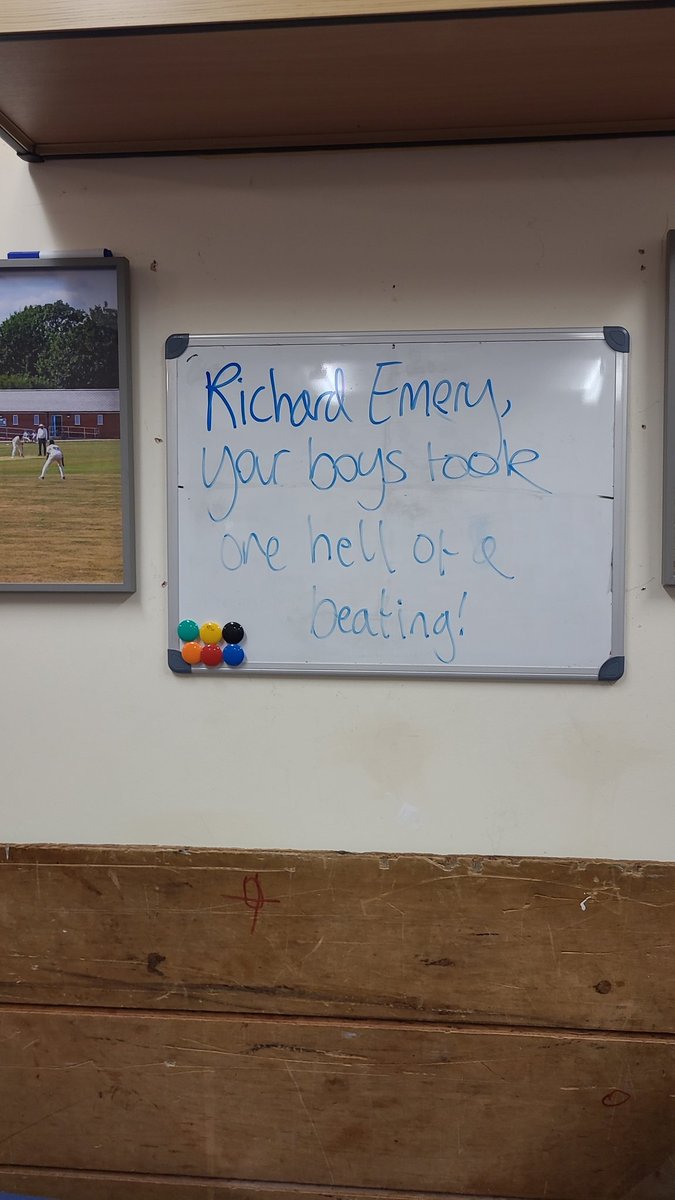 Richard Emery,
your boys took
one hell of a
beating!